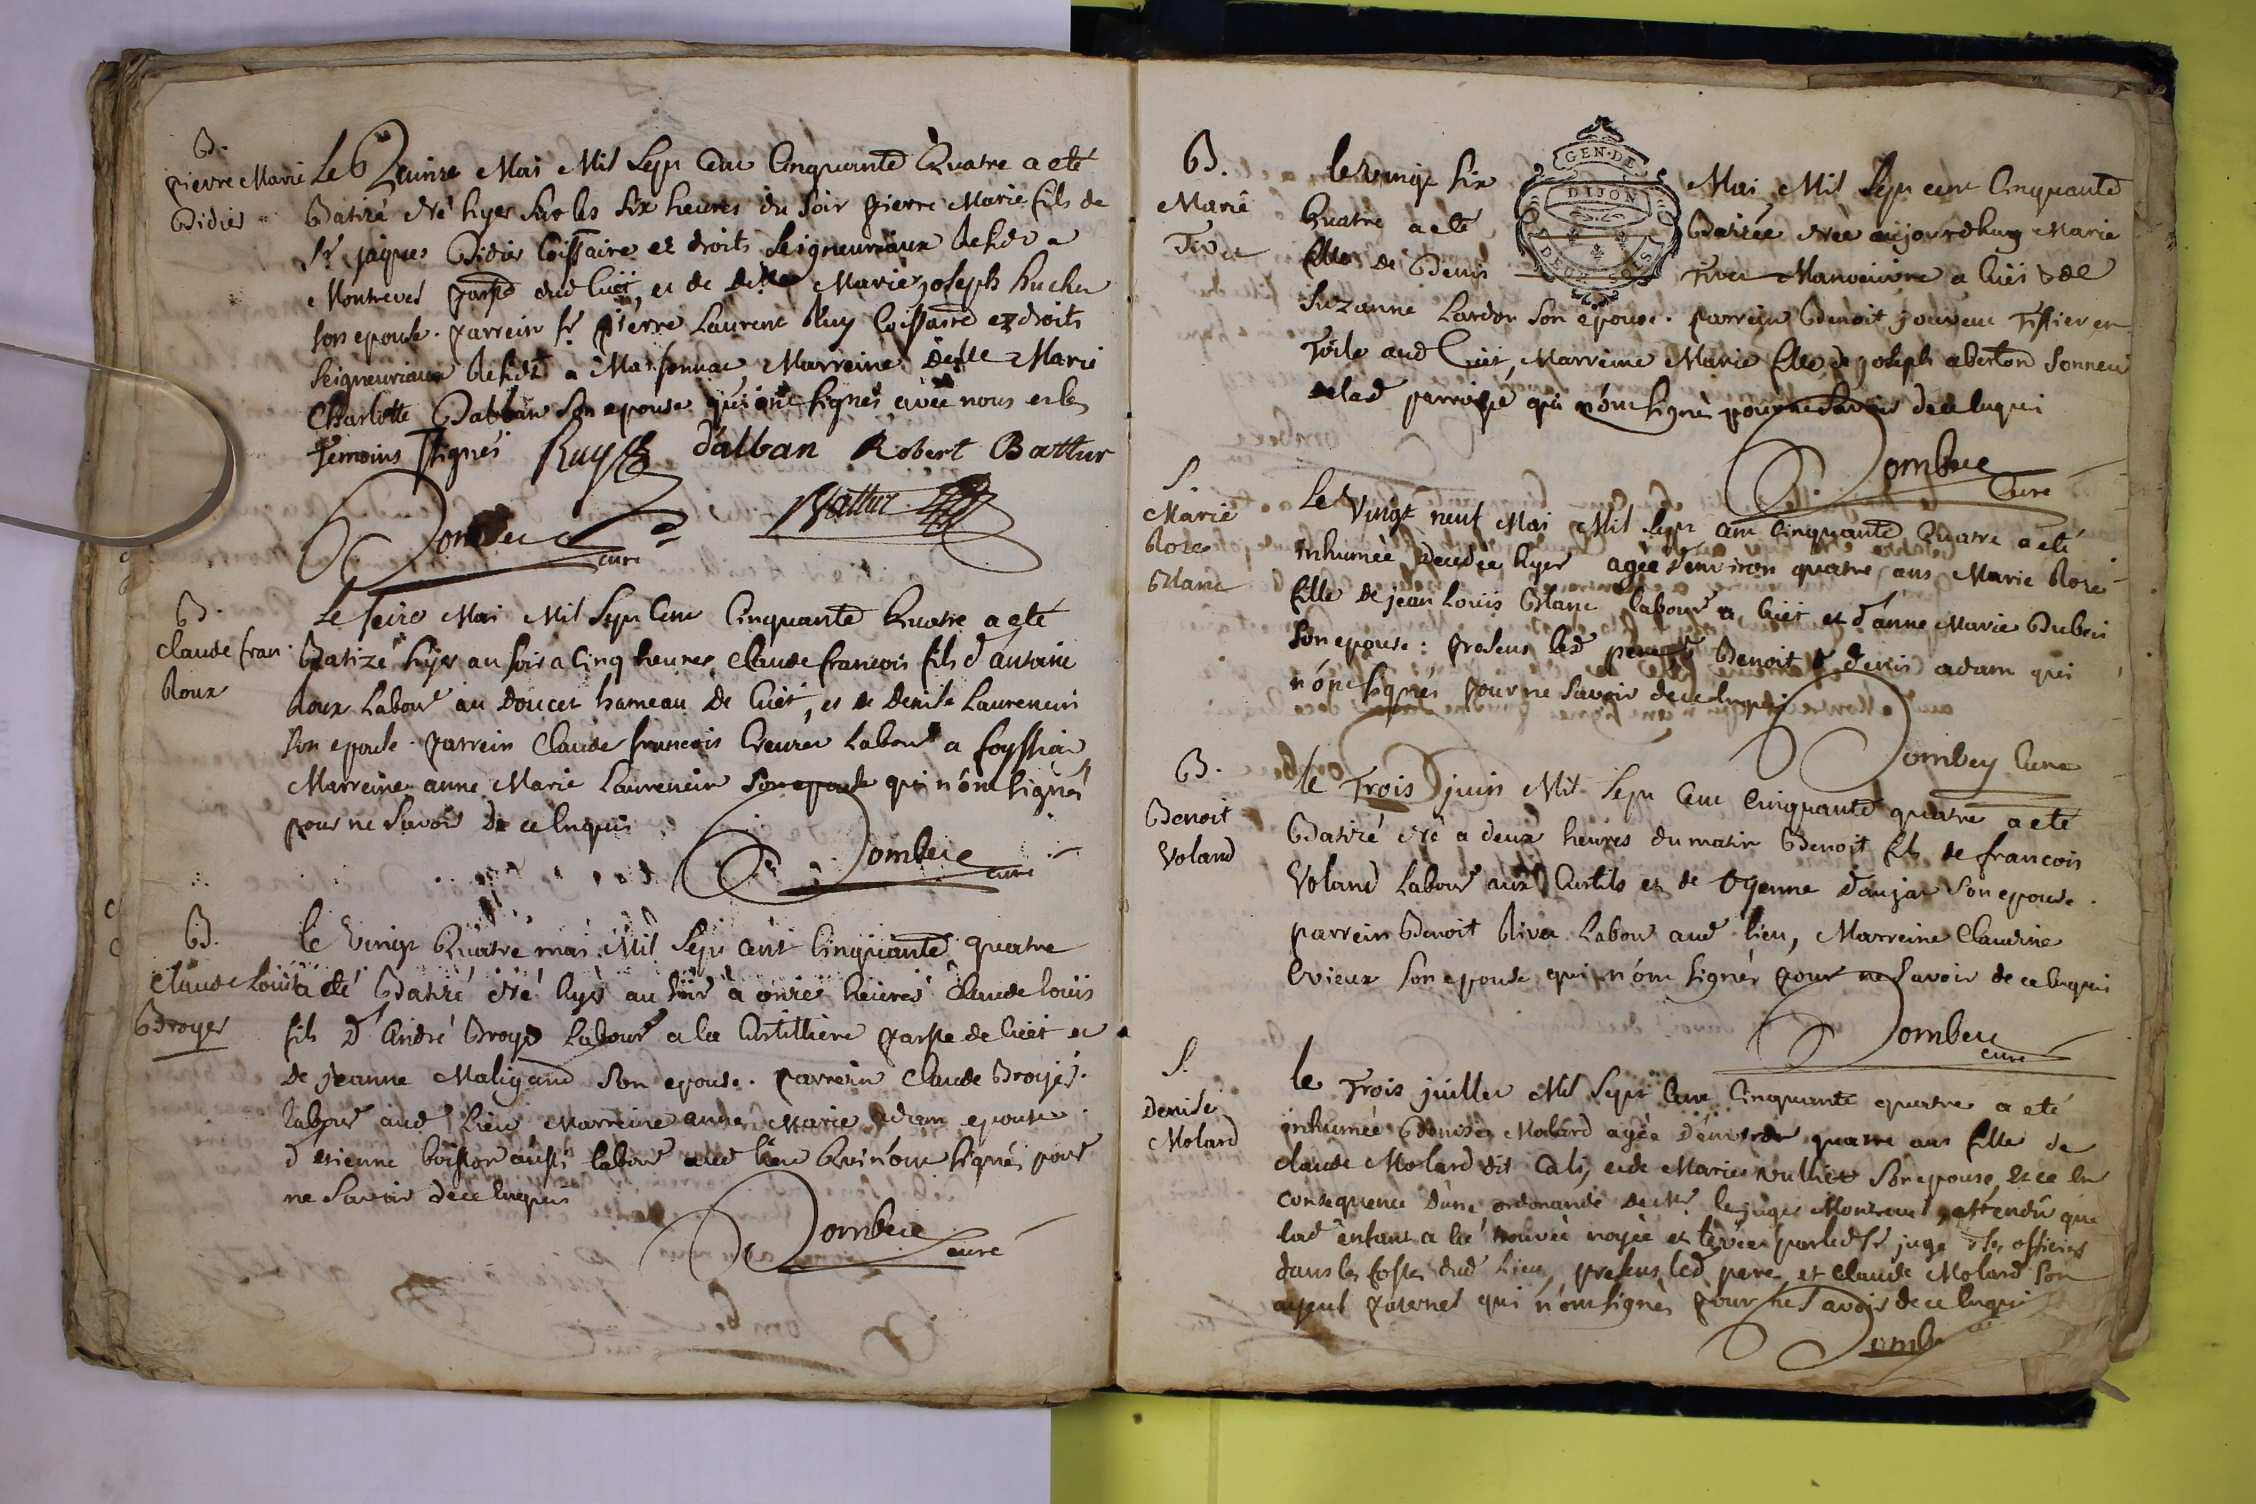 B.
pierre Marie
Didier
Le Quinze Mai Mil Sept Cent Cinquante Quatre a eté
Batizé né hyer sur les six heures du soir pierre Marie fils de
Sr. jaques Didier Coissaire et droits seigneuriaux a
Montrevel parsse dud Cuët, et de delle Marie joseph
son epouse. parrein Sr. pierre Laurent Ruy Coissaire et droits
seigneuriaux a Marsonnac Marreine delle Marie
Charlotte son epouse qui ont signés avec nous et les
temoins signés Ruy d'alban Robert Battur
Dombey curé Battur
B.
claude fran.
Roux
Le seize Mai Mil Sept Cent Cinquante Quatre a eté
Batizé hyer au soir a Cinq heures Claude francois fils d'antoine
Roux Labour au doucet hameau de Cuët, et de denise Laurencin
son epouse. parrein Claude francois Labour a foyssia
Marreine anne Marie Laurencin son epouse qui n'ont signés
pour ne savoir de ce enquis
Dombey curé
B.
Claude Louis
Broyer
le vingt Quatre mai Mil Sept cent Cinquante quatre
a eté Batizé né hyer au soir a onze heures Claude louis
fils d'andré Broyer Labour a la Curtilliere parsse de Cuët et
de jeanne Maligand son epouse. parrein Claude Broyer
labour aud Lieu Marreine anne Marie adam epouse
d'etienne aussi labour aud lieu Qui n'ont signés pour
ne savoir de ce enquis
Dombey curé
B.
Marie
Tivet
GEN. DE
DIJON
DEUX SOLS
le vingt six Mai Mil Sept cent Cinquante
Quatre a eté Batizée née aujourdhuy Marie
fille de Denis Tivet Manoeuvre a Cuët & de
Suzanne Lardon son epouse. parrein Benoit jouvent Tissier en
Toile aud Cuët, Marreine Marie fille de joseph aberton sonneur
de lad parroisse qui n'ont signés pour ne savoir de ce enquis
Dombey Curé
S.
Marie
Roze
Blanc
Le Vingt neuf Mai Mil Sept cent Cinquante Quatre a eté
inhumée decedée hyer agée d'environ quatre ans Marie Roze
fille de jean Louis Blanc labour a Cuët et d'anne Marie
son epouse: presens led pere & Benoit & denis adam qui
n'ont signés pour ne savoir de ce enquis
Dombey Curé
B.
Benoit
Voland
le Trois juin Mil Sept Cent Cinquante quatre a eté
Batizé né a deux heures du matin Benoit fils de francois
Voland Labour aux Curtils et de son epouse.
parrein Benoit Rivet Labour aud lieu, Marreine Claudine
son epouse qui n'ont signés pour ne savoir de ce enquis
Dombey curé
S.
denise
Molard
le Trois juillet Mil Sept Cent Cinquante quatre a eté
inhumée denise Molard agée d'environ quatre ans fille de
claude Molard dit Cali, et de Marie vulliet son epouse, et ce en
consequence d'une ordonance de Mr. le juge Montrevel, attendu que
lad enfant a eté trouvée noyée et levée par led Sr juge & ses officiers
dans les fosses dud Lieu, presens led pere et Claude Molard son
ayeul paternel qui n'ont signés pour ne savoir de ce enquis
Dombey